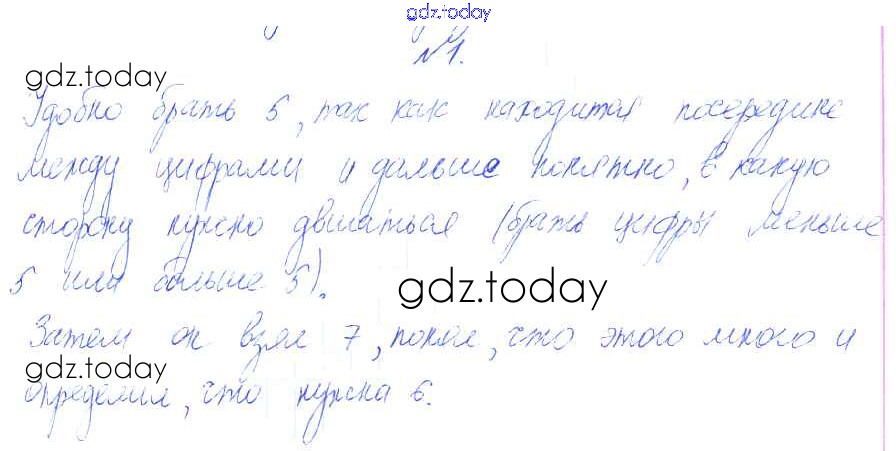 gdz.today
№1.
gdz.today
Удобно брать 5, так как находится посередине
между цифрами и дальше понятно, в какую
сторону нужно двигаться (брать цифры меньше
5 или больше 5).
gdz.today
Затем он взял 7, понял, что этого много и
gdz.today
определил, что нужна 6.